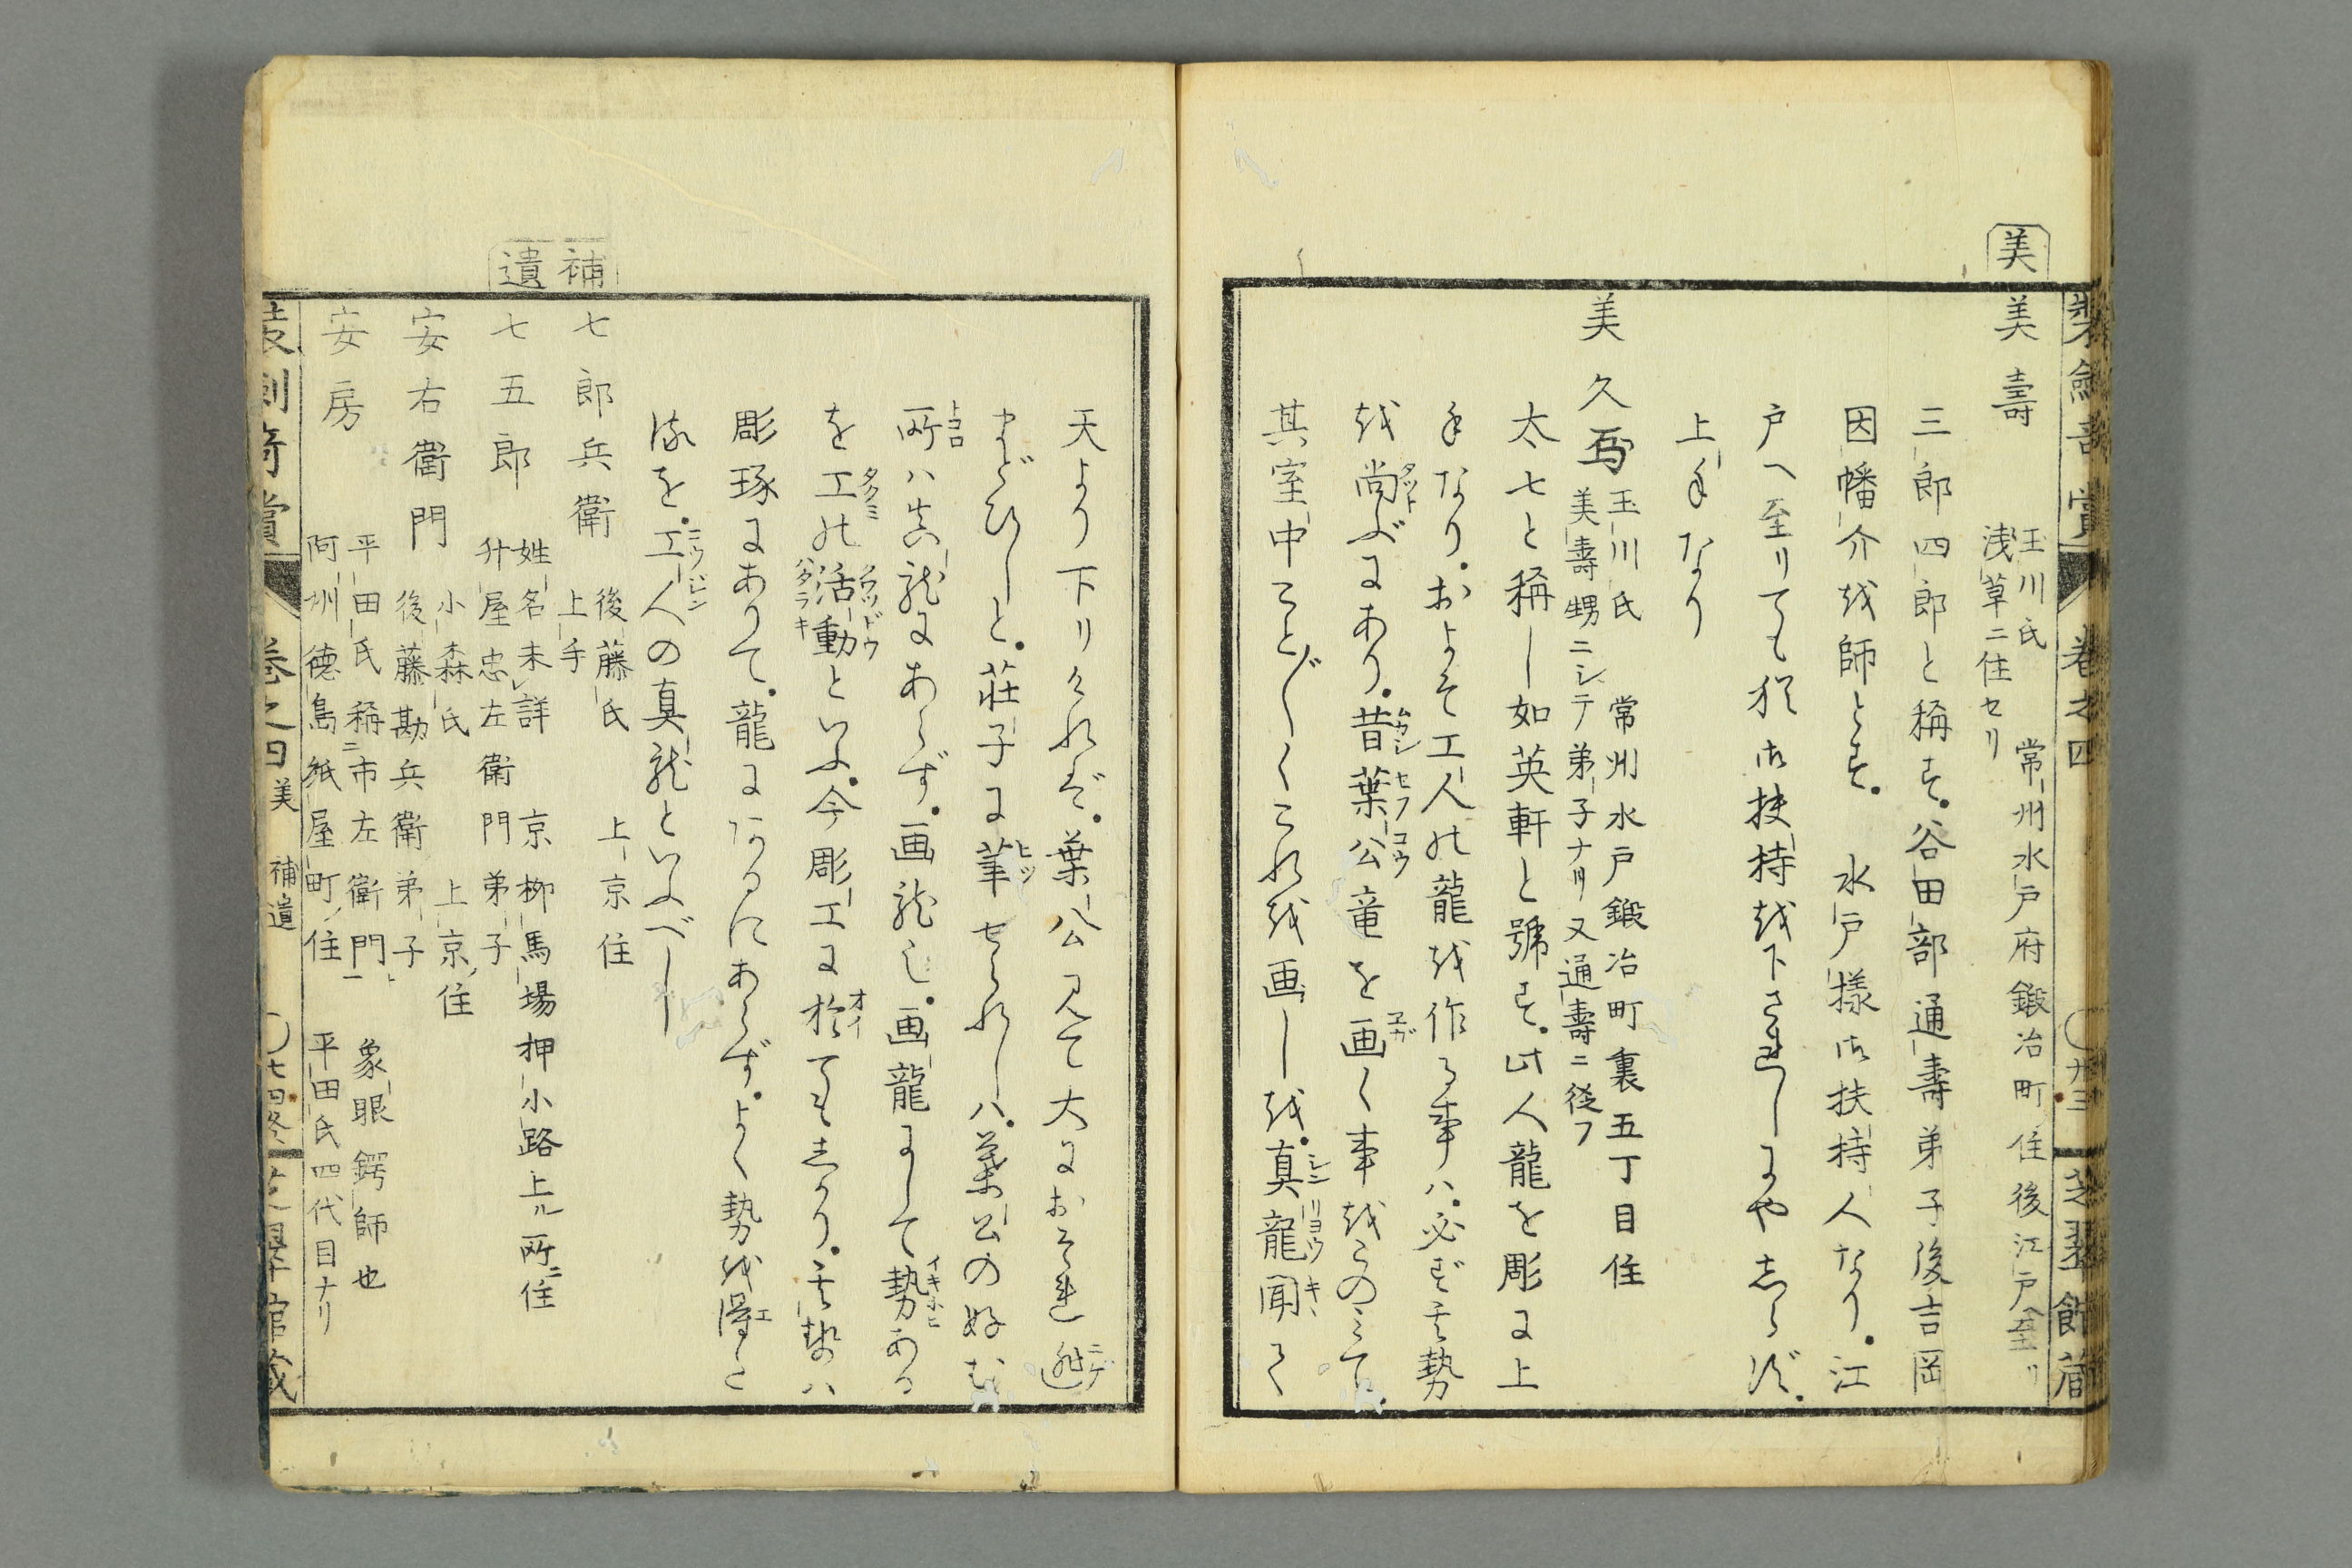 美
裝劔奇賞 巻之四 ○廿三 芝翠館蔵
美壽 玉川氏 常州水戸府鍛冶町住後江戸ヘ至リ
浅草ニ住セリ
三郎四郎と稱す。谷田部通壽弟子後吉岡
因幡介越師とす。 水戸様御扶持人なり。江
戸へ至りても猶御扶持越下されしよやしらず。
上手なり
美久 玉川氏 常州水戸鍛冶町裏五丁目住
美壽甥ニシテ弟子ナリ又通壽ニ從フ
太七と稱し如英軒と號す。此人龍を彫に上
手なり。おょそ工人の龍越作る事ハ。必ず其勢
越尚ぶにあり。昔葉公竜を画く事越このミて。
其室中こと〴〵くこれ越画しを。真龍聞て
天より下りければ。葉公見て大におそれ迯
まどひしと。荘子に筆せられしハ。葉公の好む
所ハ真龍にあらず。画龍也。画龍にして勢ある
を工の活動といふ。今彫工に於てもしかり。其勢ハ
彫琢にありて。龍にあるにあらず。よく勢越得た
るを。工人の真龍といふべし
補遺
七郎兵衛 後藤氏 上京住
上手
七五郎 姓名未詳 京柳馬場押小路上ル所ニ住
升屋忠左衛門弟子
安右衛門 小森氏 上京ノ住
後藤勘兵衛弟子
安房 平田氏稱ニ市左衛門ト一 象眼鍔師也
阿州徳島紙屋町ノ住 平田氏四代目ナリ
裝劔奇賞 巻之四 美 補遺 ○廿四終 芝翠館蔵